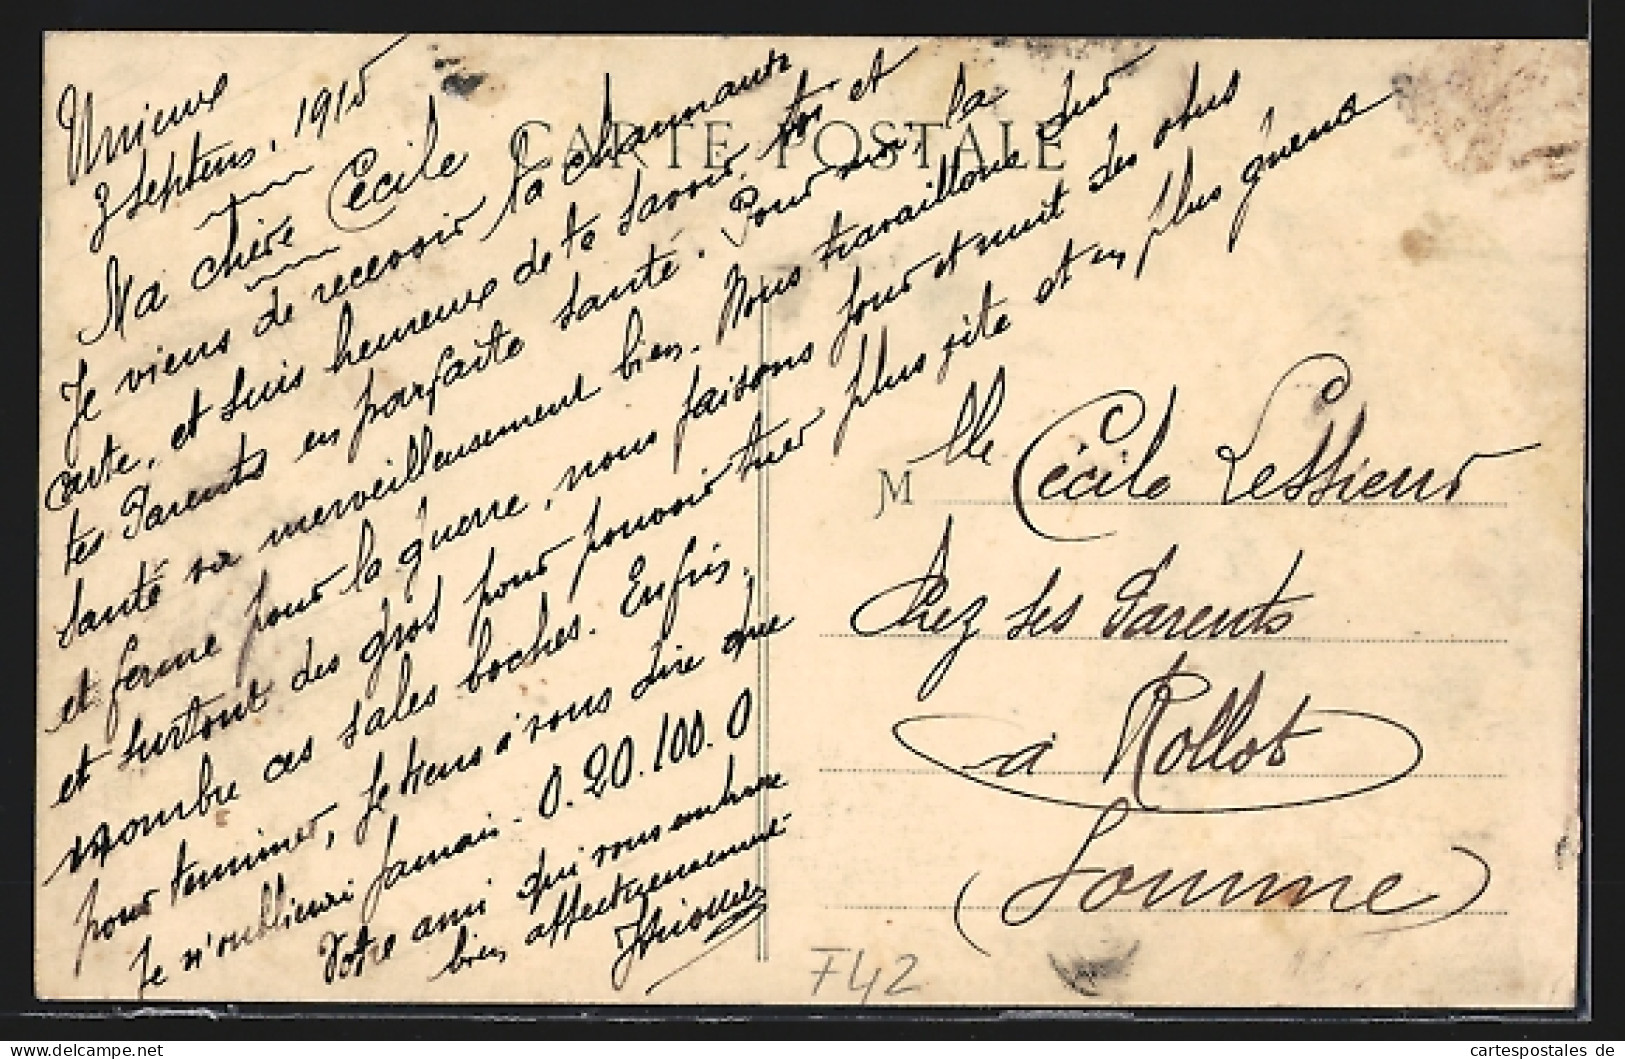 CARTE POSTALE
Unieux
3 Septem. 1915
Ma chère Cécile
Je viens de recevoir ta charmante
carte, et suis heureux de te savoir, toi et
tes Parents en parfaite santé. Pour moi, la
santé va merveilleusement bien. Nous travaillons dur
et ferme pour la guerre, nous faisons jour et nuit des obus
et surtout des gros pour pouvoir tuer plus vite et en plus grand
nombre ces sales boches. Enfin,
pour terminer, je tiens à vous dire que
je n'oublierai jamais. 0.20.100.0
Votre ami qui vous embrasse
bien affectueusement
M lle Cécile Lessieur
Chez ses Parents
à Rollot
(Somme)
F42
cartespostales de